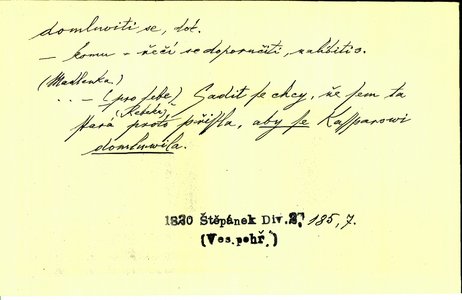 domluviti se, dok.
— komu – řečí se doporučiti, zalíbiti s.
(Madlenka)
.. — (pro sebe) Sadit se chcy, že sem ta
(Rebeka)
stará proto přissla, aby se Kassparowi
domluwila.
1830 Štěpánek Div. 2, 185, 7.
(Ves.pohř.)